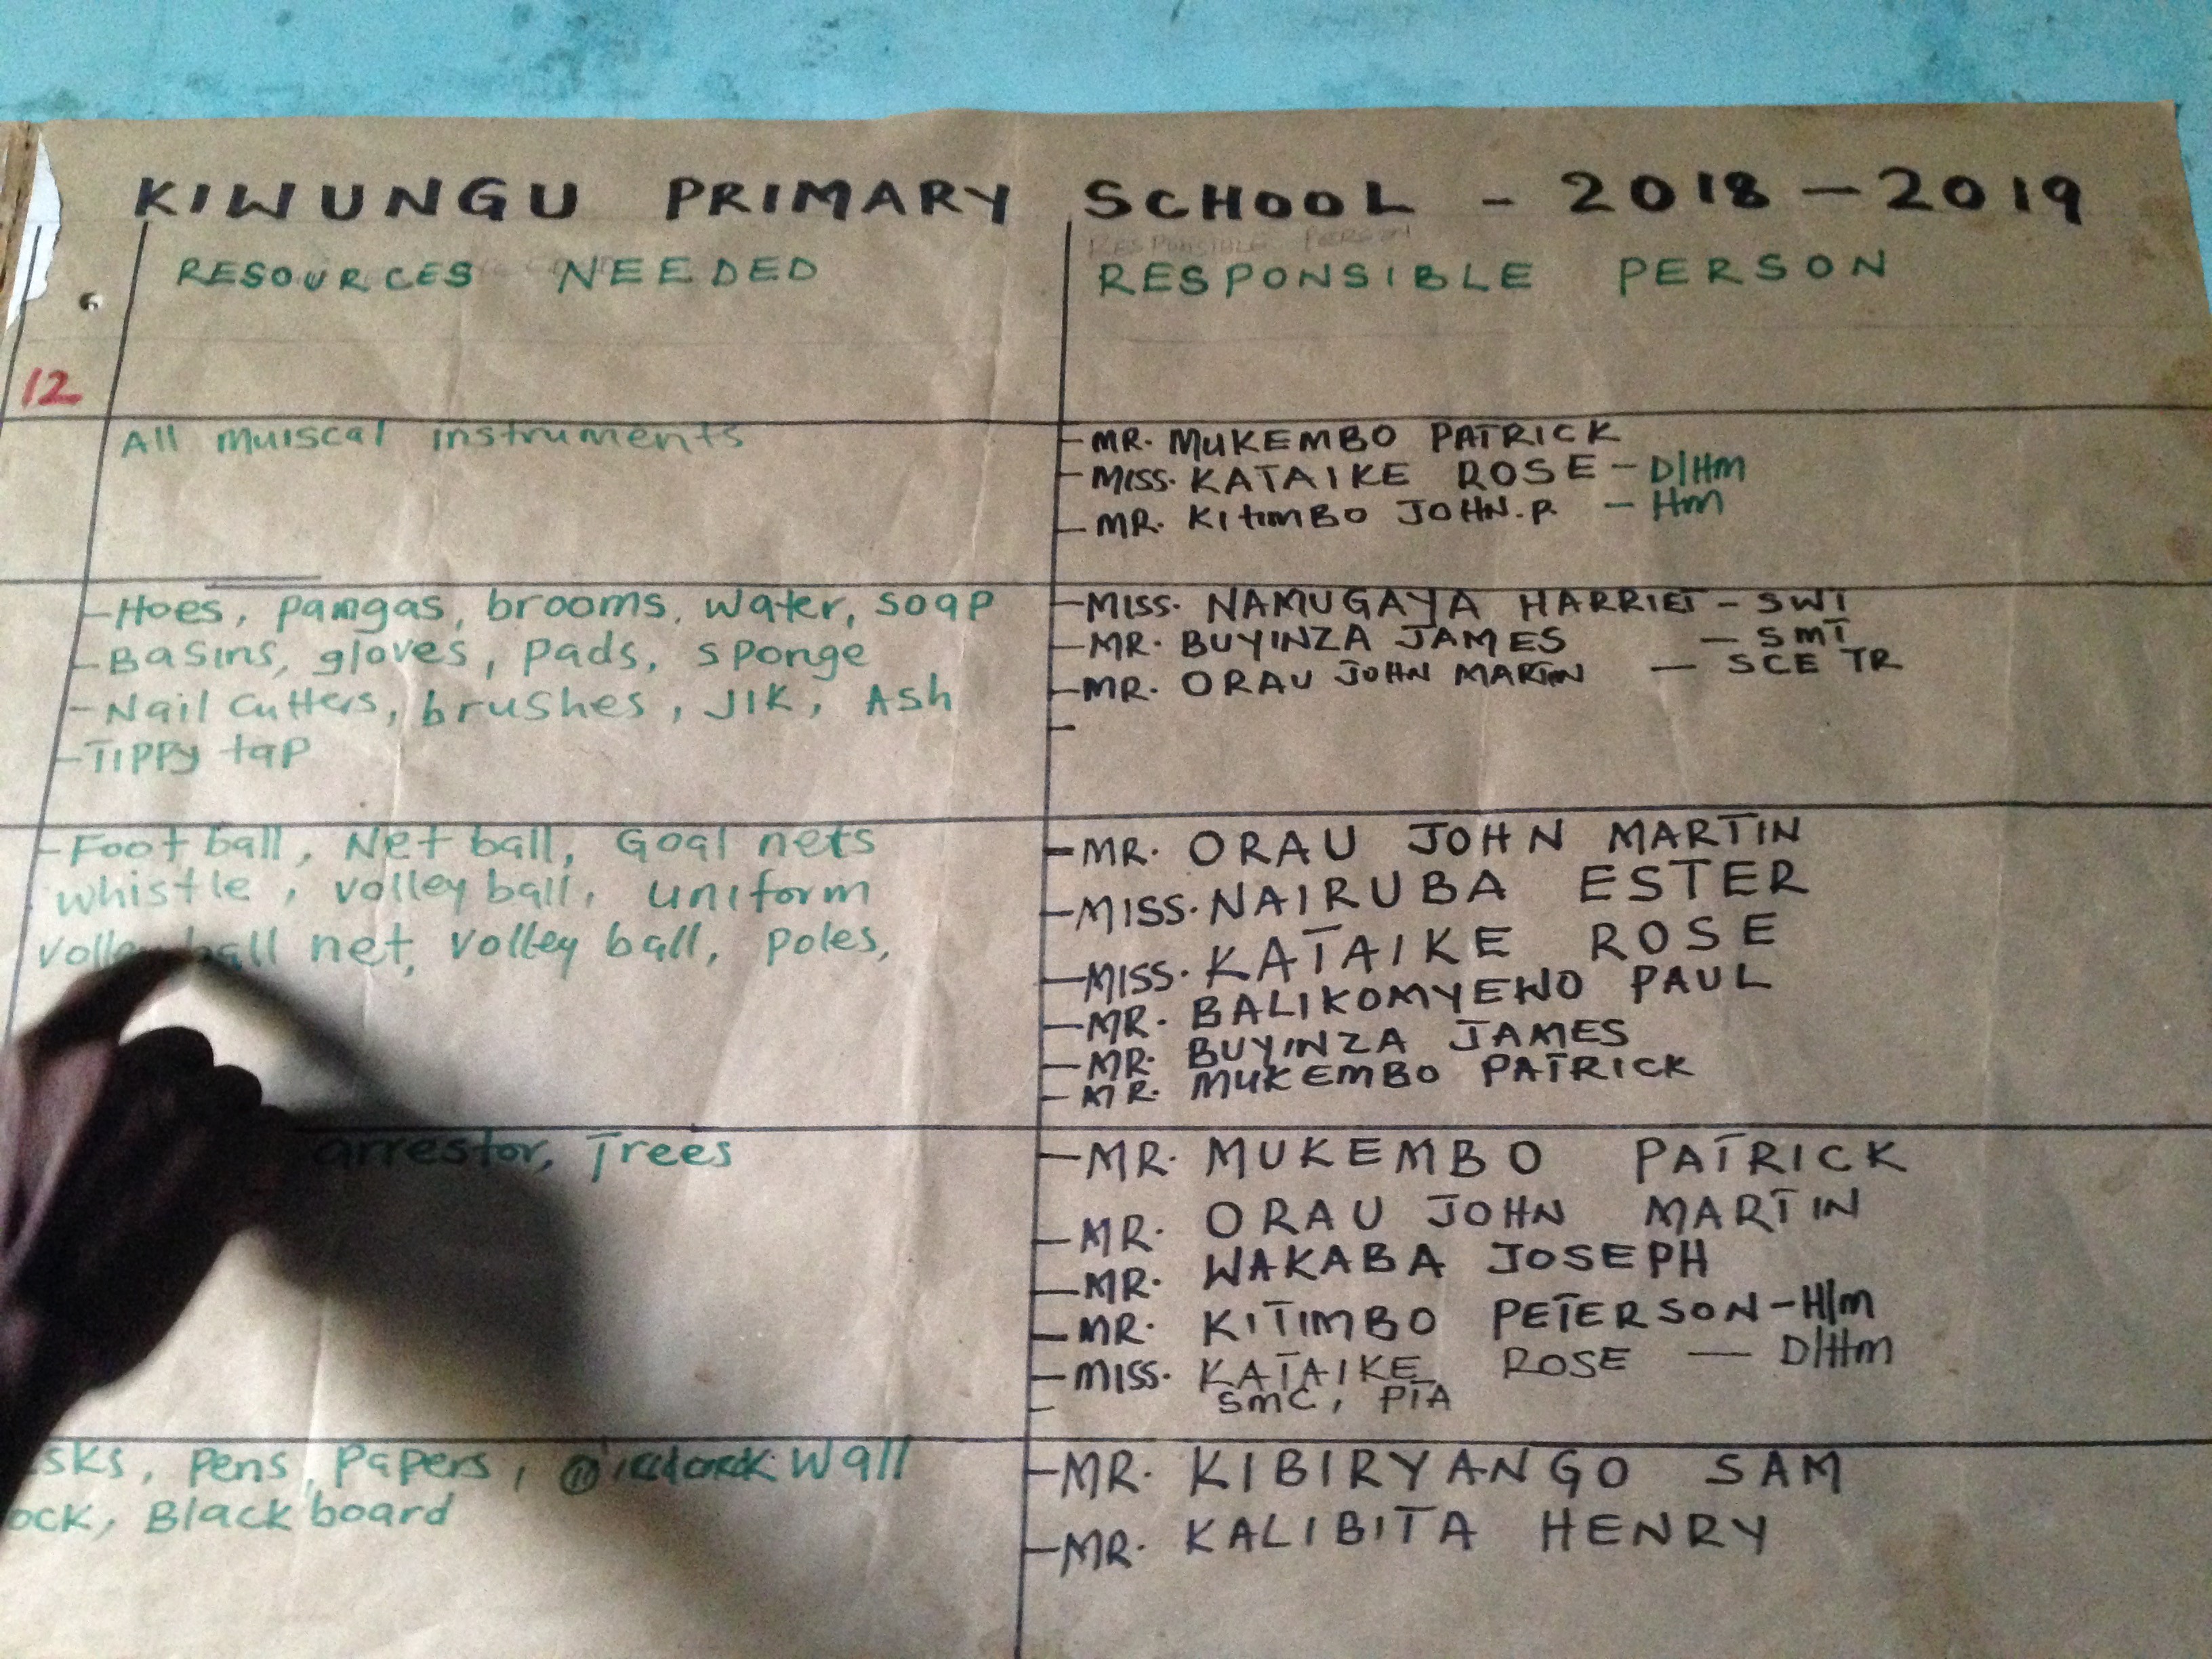 KIWUNGU PRIMARY SCHOOL - 2018 - 2019
RESPONSIBLE PERSON
RESOURCES NEEDED
RESPONSIBLE PERSON
12
All muiscal instruments
- MR. MUKEMBO PATRICK
- MISS. KATAIKE ROSE - D/Hm
- MR. KitimBO JOHN.P - Hm
- Hoes, pamgas, brooms, water, soap
- Basins, gloves, pads, sponge
- Nail cutters, brushes, JIK, Ash
- Tippy tap
- MISS. NAMUGAYA HARRIET - SWT
- MR. BUYINZA JAMES - SMT
- MR. ORAU JOHN MARTIN - SCE TR
- Foot ball, Net ball, Goal nets
whistle, volley ball, uniform
volley ball net, volley ball, poles,
- MR. ORAU JOHN MARTIN
- MISS. NAIRUBA ESTER
- MISS. KATAIKE ROSE
- MR. BALIKOMYEWO PAUL
- MR. BUYINZA JAMES
- MR. MUKEMBO PATRICK
arrestor, Trees
- MR. MUKEMBO PATRICK
- MR. ORAU JOHN MARTIN
- MR. WAKABA JOSEPH
- MR. KITIMBO PETERSON - H/m
- MISS. KATAIKE ROSE - D/Hm
- SMC, PTA
sks, pens, papers, wall
ock, Black board
- MR. KIBIRYANGO SAM
- MR. KALIBITA HENRY